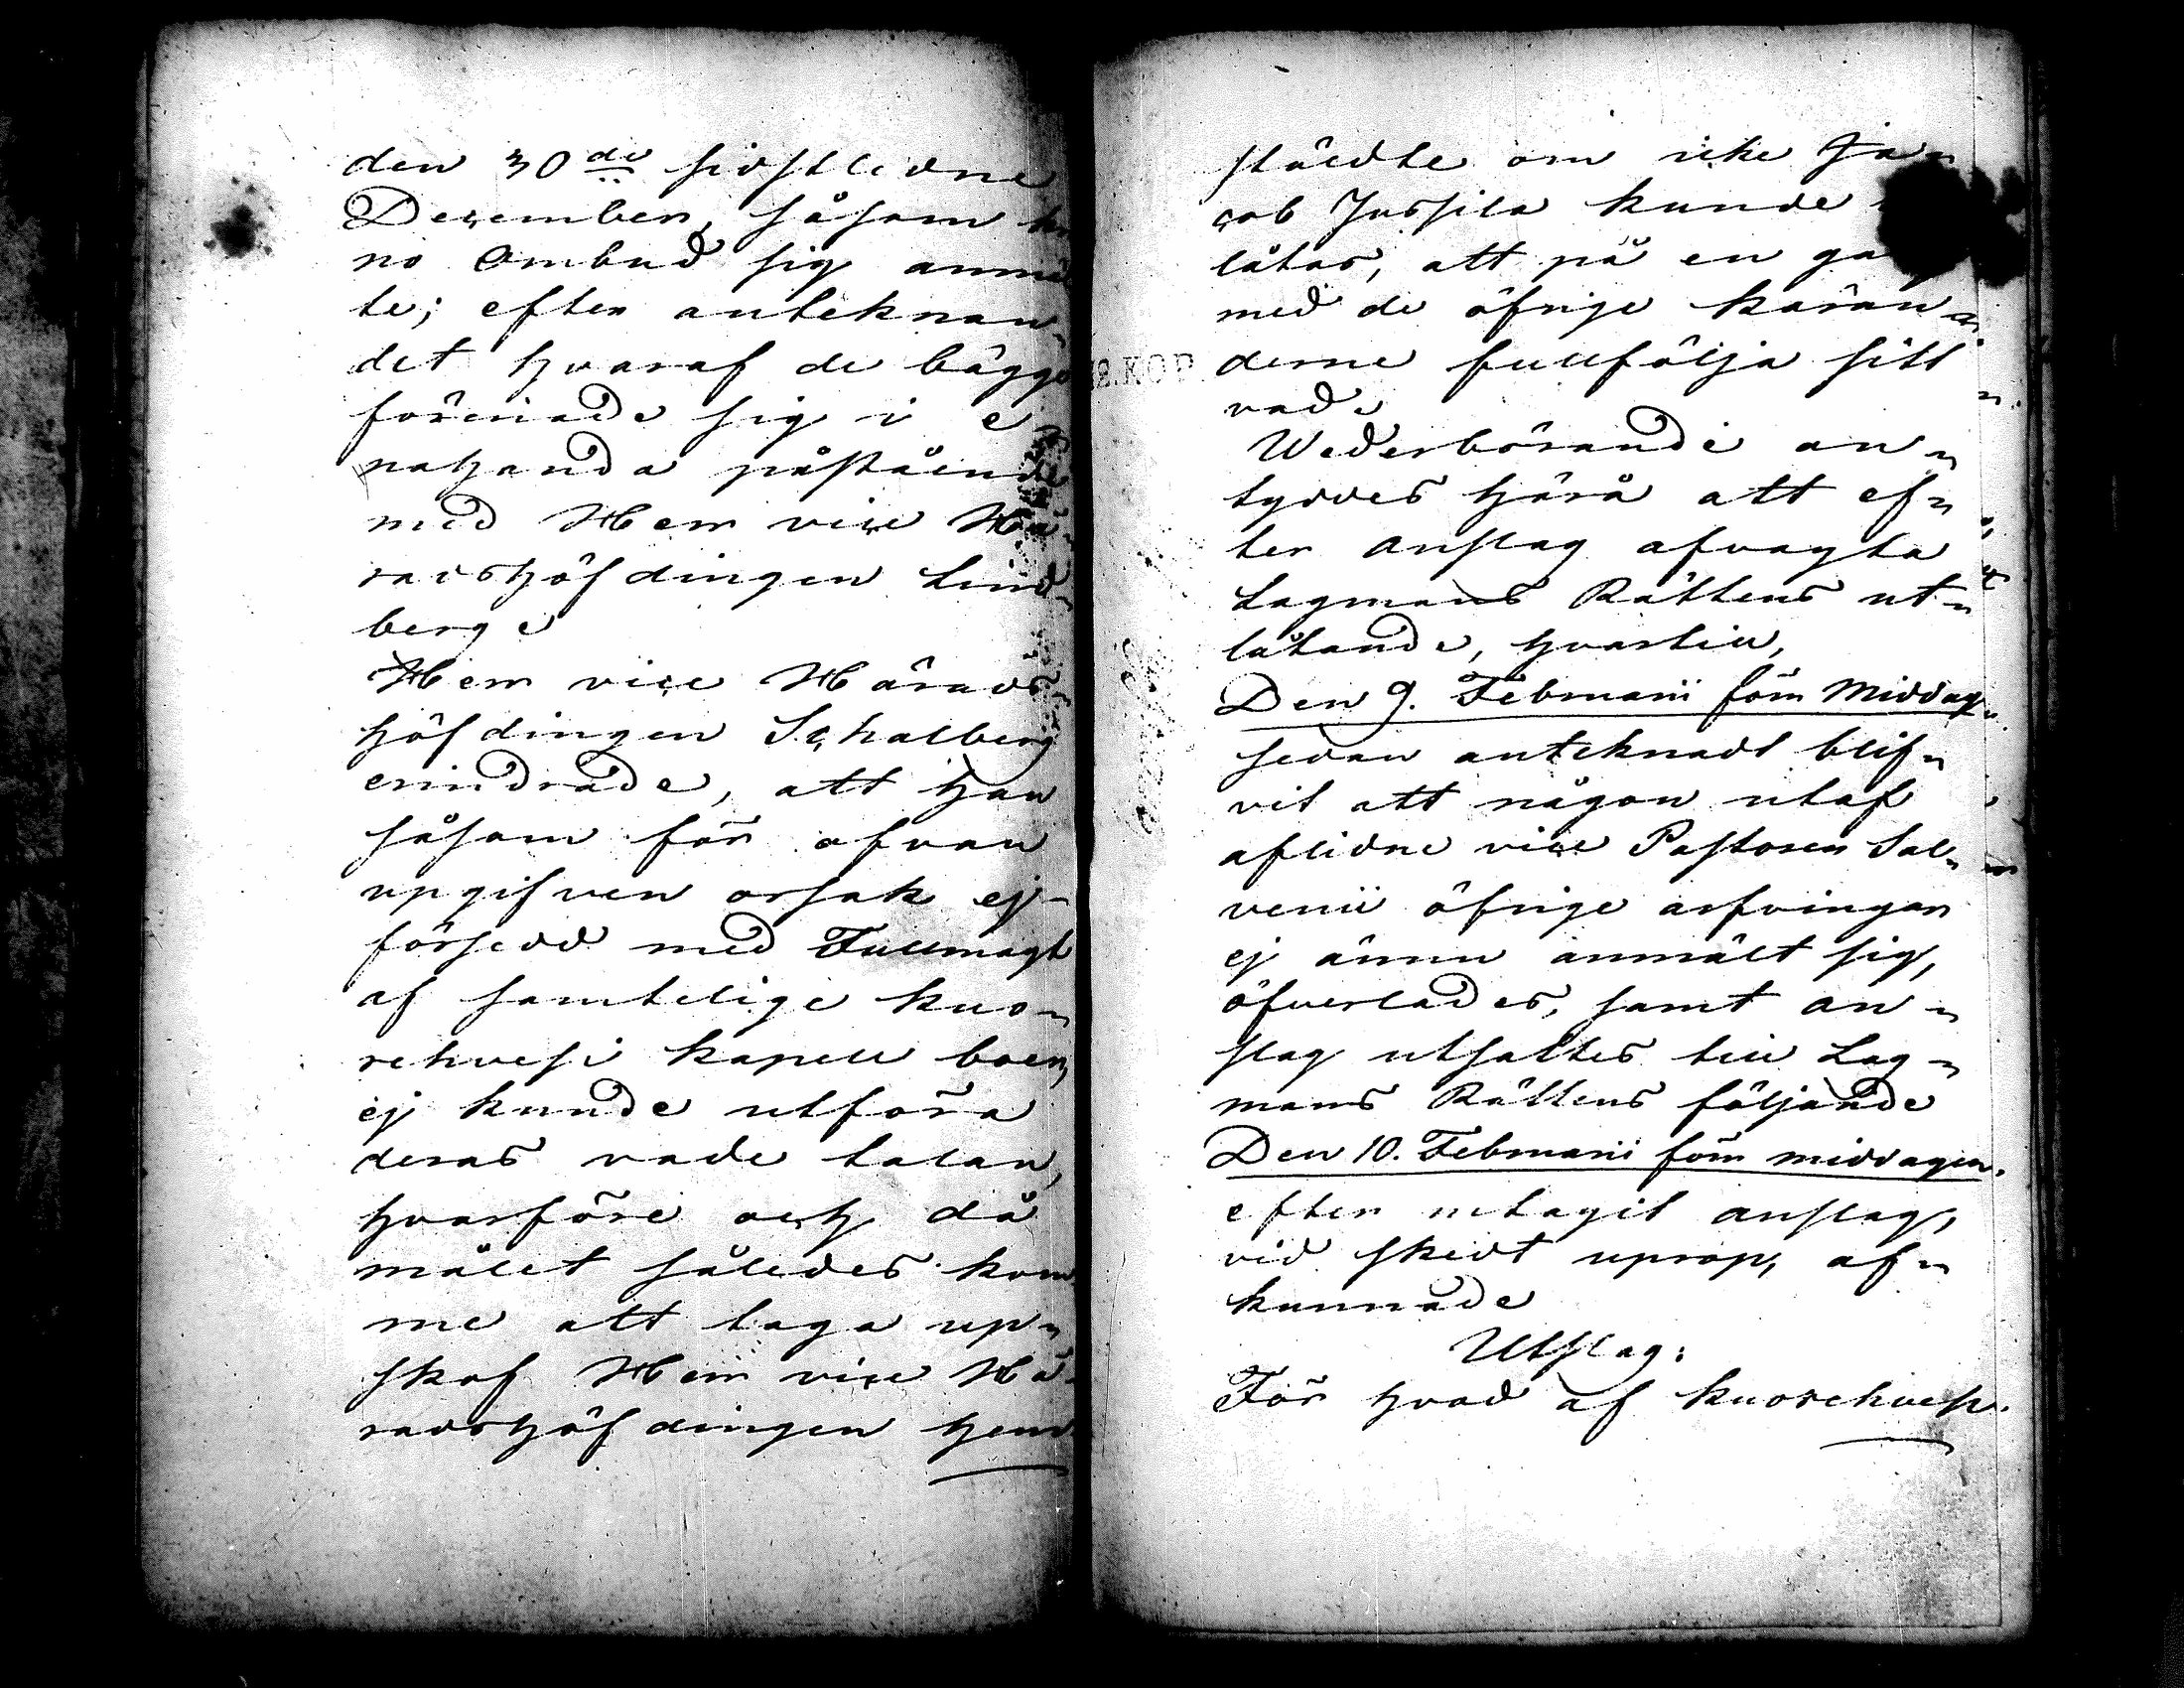 den 30de sidstledne
December, såsom
no Ombud sig anmä
te; efter anteknan¬
det hvaraf de bägge
förenade sig i e
nahanda påstående
med Herr vice Hä¬
radshöfdingen Lind¬
berg.
Herr vice Härads¬
höfdingen Schalberg
erindrade, att han
såsom för ofvan
upgifven orsak ej
försedd med Fullmagt
af samtelige Kuo¬
rehvesi kapell boer,
ej kunde utföra
deras vade talan,
hvarföre och då
målet således kom¬
me att taga up¬
skof Herr vice Hä¬
radshöfdingen hem¬
stäldte om icke Ja¬
cob Jussila kunde
låtas, att på en gå
med de öfrige käran
derne fullfölja sitt
vad.
Wederbörande an¬
tyddes härå att ef¬
ter Anslag afvagta
Lagmans Rättens ut¬
låtande, hvartill,
Den 9. Februarii förm Middag
sedan anteknadt blif¬
vit att någon utaf
aflidne vice Pastoren Sal¬
venii öfrige arfvingar
ej ännu anmält sig,
öfverlades, samt an¬
slag utsattes till Lag¬
mans Rättens följande
Den 10. Februarii förm middagen,
efter uttagit anslag,
vid skedt uprop, af¬
kunnade
Utslag:
För hvad af Kuorehvesi